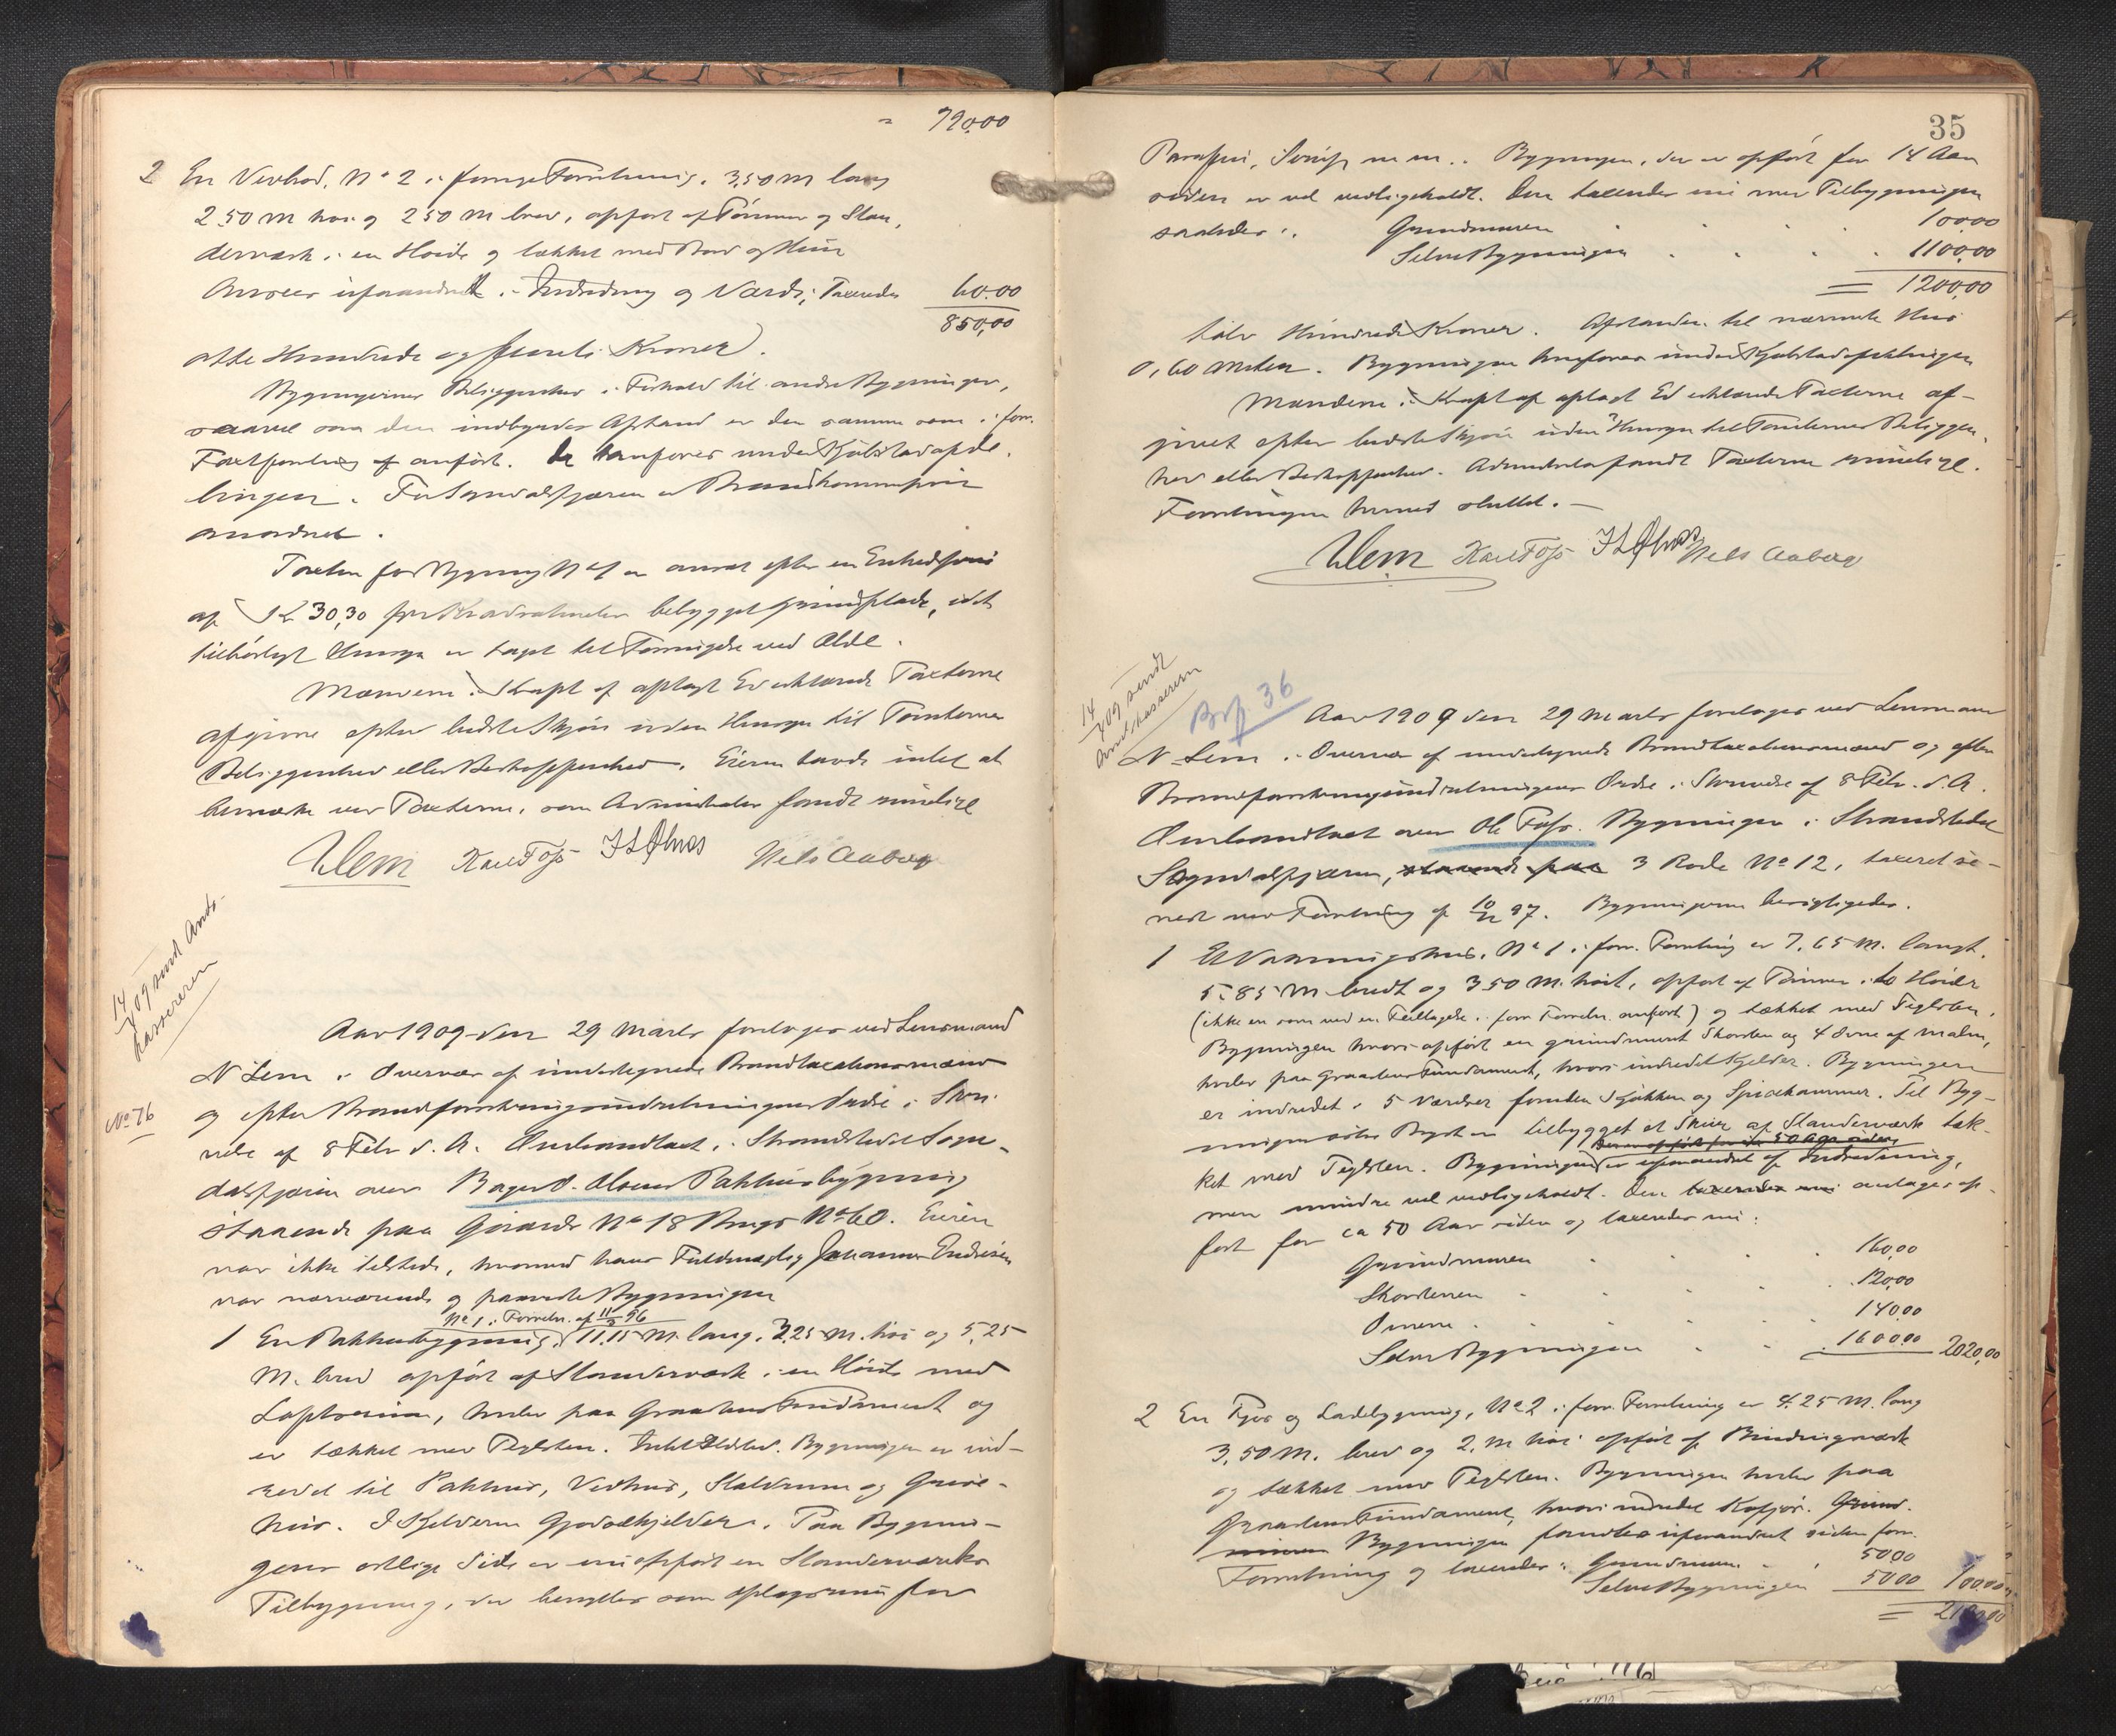 " 790,00
2 En Vedbod, No 2 i forrige Forretning, 3,50 M lang
2,50 M høi og 2,50 M bred, opført af Tømmer og Stæn-
derværk i en Høide og tækket med Bord og Hun
Ansees uforandret i Indredning og Værdi; Taxeredes 60,00
850,00
otte Hundrede og femti Kroner.
Bygningernes Beliggenhed i Forhold til andre Bygninger,
saavel som den indbyrdes Afstand er den samme som i forr.
Taxtforretning anført. De henføres under Kjøbstadafde-
lingen. For Sogndalsfjæren er Brandkommission
anordnet.
Taxten for Bygning No 1 er ansat efter en Enhedspris
af Kr 30,30 pr Kvadratmeter bebygget Grundflade, idet
tilbørligt Hensyn er taget til Forringelse ved Ælde.
Mændene i Kraft af aflagt Ed erklærede Taxterne
afgivne efter bedste Skjøn uden Hensyn til Tomternes
Beliggenhed eller Beskaffenhed. Eieren havde intet at
bemærke ved Taxterne, som Administrator fandt rimelige
NLem Karl Foss Nils Aaberg
14/4 09 sendt Amts-
kassereren
Aar 1909 den 29 Marts foretoges ved Lensmand
N Lem i Overvær af undertegnede Brandtaxationsmænd
No 76
og efter Brandforsikringsindretningens Ordre i Skri-
velse af 8 Febr d. A. Ombrandtaxt i Strandstedet Sogn-
dalsfjæren over Bager O. Olsens Pakhusbygning
staaende paa Gaards No 18 Brugs No 60. Eieren
var ikke tilstede, hvorimod hans Fuldmægtig Johannes Endresen
var nærværende og paaviste Bygningen
No 1 i Forretn. af 11/5 96
1 En Pakhusbygning, 11.15 M. lang, 3,25 M. høi og 5,25
M. bred opført af Stænderværk i en Høide med
Loftsrum, hviler paa Graastens Fundament og
er tækket med Teglsten. Intet Ildsted. Bygningen er ind-
redet til Pakhus, Vedhus, Staldrum og Grise-
hus. I Kjelderen Gjødselkjelder. Paa Bygnin-
gens østlige Side er nu opført en Stænderværks
Tilbygning, der benyttes som Oplagsrum for
35
Parafin, Sirup m. m. Bygningen, der er opført for 14 Aar
siden er vel vedligeholdt. Den taxeredes nu med Tilbygningen
saaledes: Grundmuren 100,00
Selve Bygningen 1100,00
= 1200,00
tolv Hundrede Kroner. Afstanden til nærmeste Hus
0,60 Meter. Bygningen henføres under Kjøbstadafdelingen
Mændene i Kraft af aflagt Ed erklærede Taxterne af-
givet efter bedste Skjøn uden Hensyn til Tomternes Beliggen-
hed eller Beskaffenhed. Administrator fandt Taxterne rimelige.
Forretningen hermed sluttet. —
NLem Karl Foss Nils Aaberg
14/4 09 sendt
Amtkassereren
36
Aar 1909 den 29 Marts foretoges ved Lensmand
N Lem i Overvær af undertegnede Brandtaxationsmænd og efter
Brandforsikringsindretningens Ordre i Skrivelse af 8 Febr. d. A.
Ombrandtaxt over Ole Foss. Bygninger i Strandstedet
Sogndalsfjæren, staaende paa 3 Rode No 12, taxeret se-
nest ved Forretning af 10/12 97. Bygningerne besigtigedes.
1 Et Vaaningshus, No 1 i forr. Forretning er 7,65 M. langt,
5,85 M bredt og 3,50 M. høit, opført af Tømmer i to Høider
(ikke en som ved en Feiltagelse i forr Forretn. anført) og tækket med Teglsten,
Bygningen hvori opført en grundmuret Skorsten og 4 Ovne af Malm,
hviler paa Graastens Fundament, hvori indredet Kjelder. Bygningen
er indredet i 5 Værelser foruden Kjøkken og Spisekammer. Til Byg-
ningens østre Bygt er tilbygget et Skur af Stænderværk tæk-
Den er opført for ca 50 Aar siden
ket med Teglsten. Bygningen er uforandret af Indredning,
men mindre vel vedligeholdt. Den taxeredes nu antages op-
ført for ca 50 Aar siden og taxeredes nu:
Grundmuren 160,00
Skorstenen 120,00
Ovnene 140,00
Selve Bygningen 1600,00 2020,00
2 En Fjøs og Ladebygning, No 2 i forr. Forretning er 4,25 M. lang
3,50 M. bred og 2, M høi opført af Bindingsværk
og tækket med Teglsten. Bygningen hviler paa
Graastens Fundament, hvori indredet Kofjøs. Grund-
muren Bygningen fandtes uforandret siden forr.
Forretning og taxeredes: Grundmuren 50,00
Selve Bygningen 50,00 100,00
=